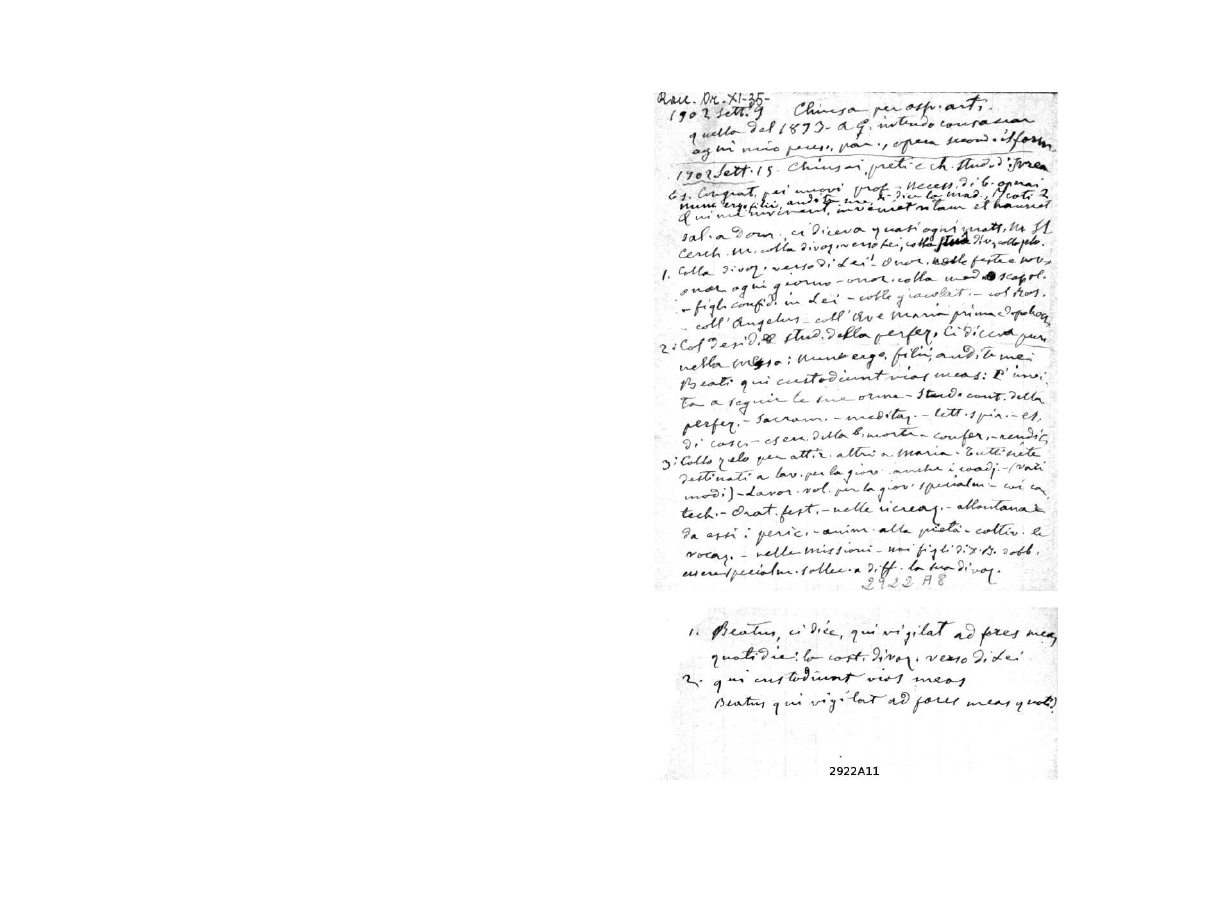 Racc. Dr. XI-35-
1902 Sett. 9 Chiusa per asp. art.
quella del 1893 - a G. intendo consacrar
ogni mio pens., par., opera second. is form
1902 Sett. 15. Chiusa es. preti e ch. stud. d'Ivrea
Es. Congrat. pei nuovi prof. - Necess. di b. operai
nunc ergo filii, audite me, ci dice la Mad.
Qui me invenerit, inveniet vitam et hauriet
sal. a Dom. ci diceva quasi ogni matt. M SS
Cerch. M. colla divoz. verso Lei, collo stud. div., collo zelo.
1. Colla divoz. verso di Lei - Onor. nelle feste e nov.
onor. ogni giorno - onor. colla med. scapol.
- figli. confid. in Lei - colle giaculat. - col Ros.
- coll'Angelus - coll'Ave Maria prima e dopo
2. Col desid. e stud. della perfez. Ci diceva pure
nella messa: Nunc ergo, filii, audite me:
Beati qui custodiunt vias meas: È invi-
ta a seguir le sue orme - Stud. cont. della
perfez. - Sacram. - meditaz. - lett. spir. - es.
di cosc. - eserc. della b. morte - confer. - rendic.
3. Collo zelo per attir. altri a Maria. Tutti siete
destinati a lav. per la giov. anche i coadj. - (vari
modi) - Lavor. vol. per la giov. specialm. - coi ca-
tech. - Orat. fest. - nelle ricreaz. - allontanar
da essi i peric. - anim. alla pietà - coltiv. le
vocaz. - nelle missioni - noi figli di D. B. dobb.
essere specialm. sollec. a diff. la sua divoz.
2922 A8
1. Beatus, ci dice, qui vigilat ad fores meas
quotidie: la cost. divoz. verso di Lei
2. qui custodiunt vias meas
Beatus qui vigilat ad fores meas quotid.
2922A11